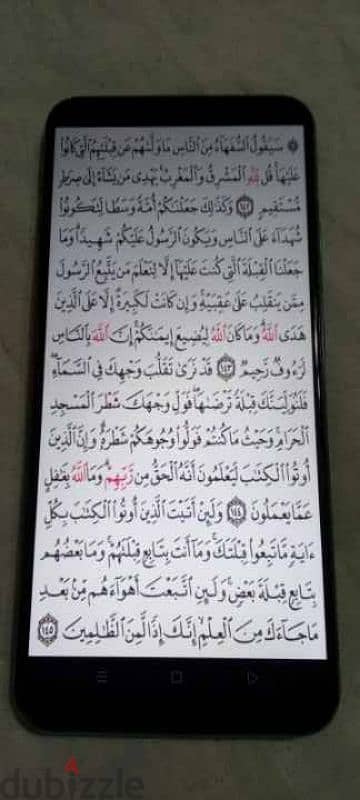 ۞ سَيَقُولُ ٱلسُّفَهَآءُ مِنَ ٱلنَّاسِ مَا وَلَّىٰهُمْ عَن قِبْلَتِهِمُ ٱلَّتِى كَانُوا۟
عَلَيْهَا ۚ قُل لِّلَّهِ ٱلْمَشْرِقُ وَٱلْمَغْرِبُ ۚ يَهْدِى مَن يَشَآءُ إِلَىٰ صِرَٰطٍ
مُّسْتَقِيمٍ ١٤٢ وَكَذَٰلِكَ جَعَلْنَٰكُمْ أُمَّةً وَسَطًا لِّتَكُونُوا۟
شُهَدَآءَ عَلَى ٱلنَّاسِ وَيَكُونَ ٱلرَّسُولُ عَلَيْكُمْ شَهِيدًا ۗ وَمَا
جَعَلْنَا ٱلْقِبْلَةَ ٱلَّتِى كُنتَ عَلَيْهَآ إِلَّا لِنَعْلَمَ مَن يَتَّبِعُ ٱلرَّسُولَ
مِمَّن يَنقَلِبُ عَلَىٰ عَقِبَيْهِ ۚ وَإِن كَانَتْ لَكَبِيرَةً إِلَّا عَلَى ٱلَّذِينَ
هَدَى ٱللَّهُ ۗ وَمَا كَانَ ٱللَّهُ لِيُضِيعَ إِيمَٰنَكُمْ ۚ إِنَّ ٱللَّهَ بِٱلنَّاسِ
لَرَءُوفٌ رَّحِيمٌ ١٤٣ قَدْ نَرَىٰ تَقَلُّبَ وَجْهِكَ فِى ٱلسَّمَآءِ ۖ
فَلَنُوَلِّيَنَّكَ قِبْلَةً تَرْضَىٰهَا ۚ فَوَلِّ وَجْهَكَ شَطْرَ ٱلْمَسْجِدِ
ٱلْحَرَامِ ۚ وَحَيْثُ مَا كُنتُمْ فَوَلُّوا۟ وُجُوهَكُمْ شَطْرَهُۥ ۗ وَإِنَّ ٱلَّذِينَ
أُوتُوا۟ ٱلْكِتَٰبَ لَيَعْلَمُونَ أَنَّهُ ٱلْحَقُّ مِن رَّبِّهِمْ ۗ وَمَا ٱللَّهُ بِغَٰفِلٍ
عَمَّا يَعْمَلُونَ ١٤٤ وَلَئِنْ أَتَيْتَ ٱلَّذِينَ أُوتُوا۟ ٱلْكِتَٰبَ بِكُلِّ
ءَايَةٍ مَّا تَبِعُوا۟ قِبْلَتَكَ ۚ وَمَآ أَنتَ بِتَابِعٍ قِبْلَتَهُمْ ۚ وَمَا بَعْضُهُم
بِتَابِعٍ قِبْلَةَ بَعْضٍ ۚ وَلَئِنِ ٱتَّبَعْتَ أَهْوَآءَهُم مِّنۢ بَعْدِ
مَا جَآءَكَ مِنَ ٱلْعِلْمِ ۙ إِنَّكَ إِذًا لَّمِنَ ٱلظَّٰلِمِينَ ١٤٥
dubizzle